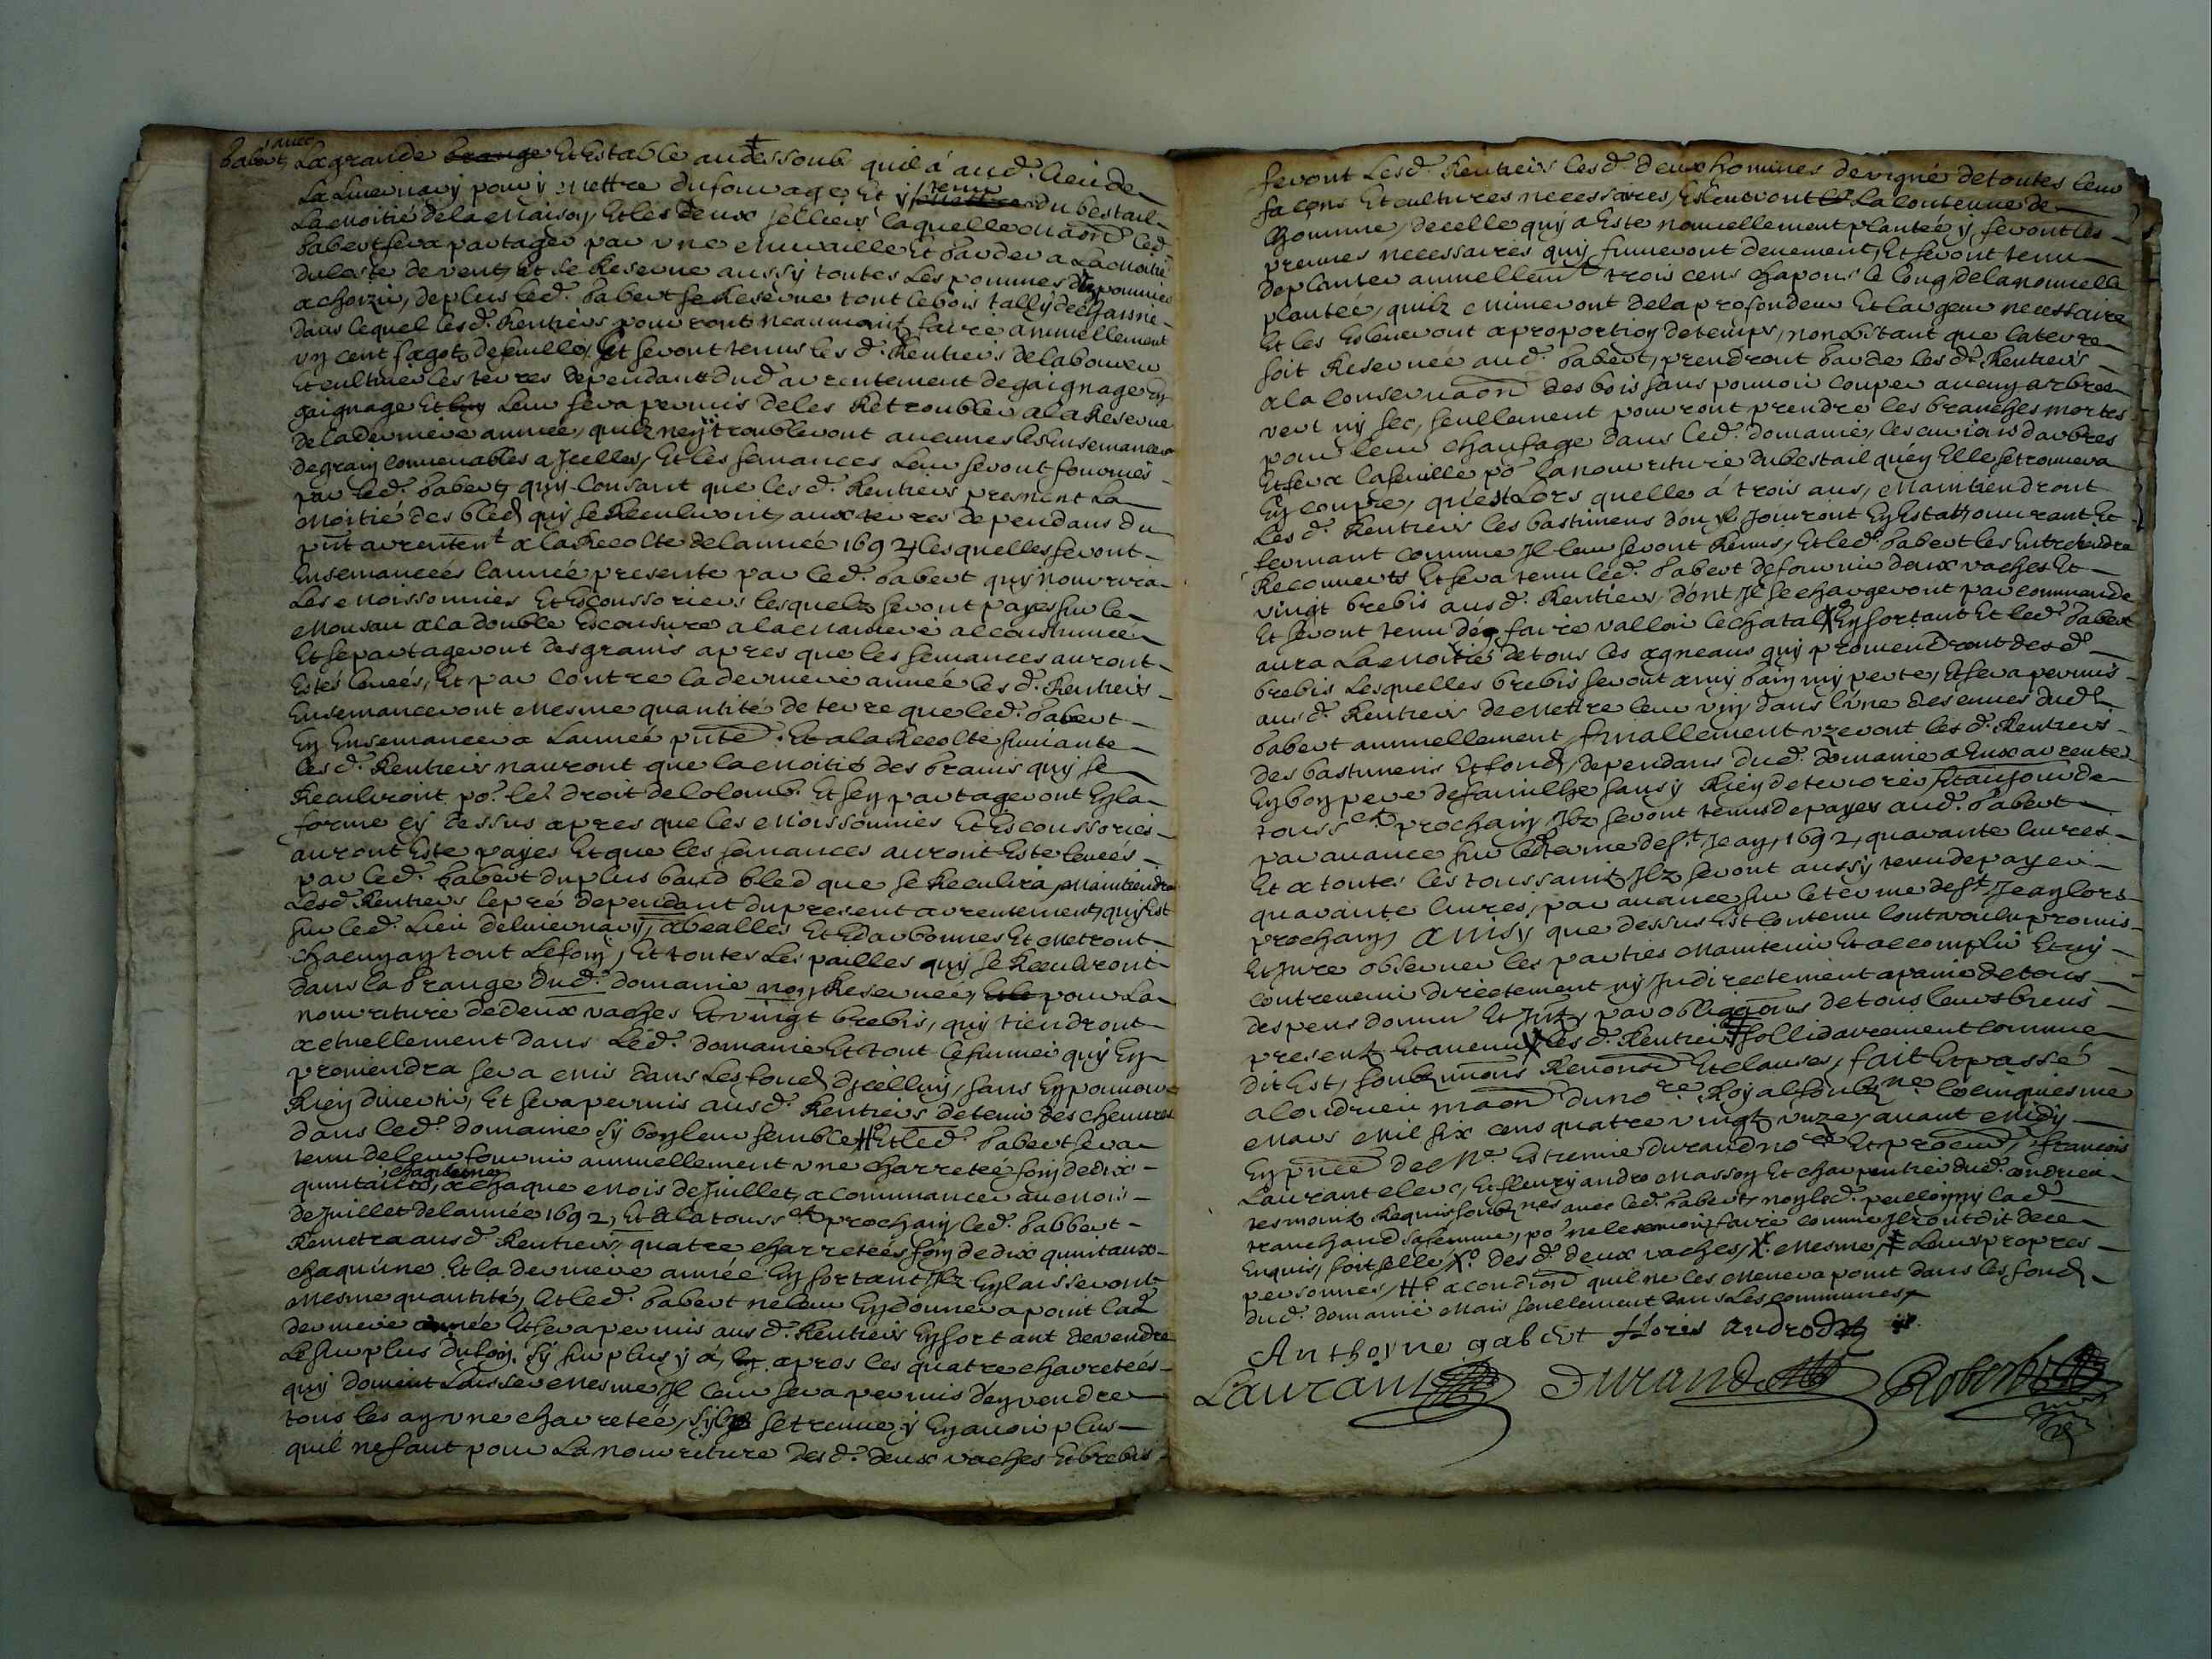 gabert, avec La grande grange Et Estable au dessoub quil á aud.t lieu de
La Luiernary pour y Mettre du fourage, Et y tenir du bestail
La Moitié de la Maison, Et les deux selliers laquelle Maõn led.
gabert fera partager par une Muraille Et garder a La Moitié
du coste de vent, Et se Reserve aussy toutes Les pommes d'un pommier
a choizir, de plus led.t gabert se Reserve tout le bois tally de chasne
dans lequel lesd.t Rentiers pourront neaumoins faire annuellement
un cent fagotz de feuilles, Et seront tenus lesd.t Rentiers de labourer
Et cultiver les terres dependant dud.t arrentement de gaignage En
gaignage Et Leur sera permis de les Retroubler a la Reserve
de la derniere année, quilz ne retroubleront aucunes Les Ensemancer
de grain convenables a Jcelles, Et les semances Leur seront fournies
par led.t gabert, quy consant que lesd.t Rentiers prenent La
Moitié des bledz quy se Recullront, aux terres dependans du
pñt arrentem.t a la Recolte de lannée 1692, lesquelles seront
Ensemancées lannée presente par led.t gabert quy nourrira
Les Moissonniers Et Escoussoriers lesquelz seront payes sur le
Monsau a la double Escousure a la Maniere accoustumée
Et se partageront des grains apres que les semances auront
Estés levées, Et par contre la derniere année lesd.t Rentiers
Ensemanceront Mesme quantité de terre que led.t gabert
En Ensemancera Lannée pñte. Et a la Recolte suiuante
lesd.t Rentiers nauront que la Moitié des grains quy se
Recullront po.r le droit de colomb. Et sen partageront En la
forme cy dessus apres que les Moissonnies Et Escoussories
auront Este payes Et que les semances auront Este levées
par led.t gabert du plus baud bled que se Recullira, Maintiendra
Lesd.t Rentiers le pré dependant du present arrentement, quy Est
sur led.t Lieu de Luiernary, abealles Et Edarbonnes Et Metront
chacun an tout Le foin, Et toutes Les pailles quy se Recullront
dans la grange dud.t domaine non Reservée, pour La
nourriture de deux vaches Et vingt brebis, quy tiendront
actuellement dans Led.t domaine Et tout le fumier quy En
proviendra sera mis dans Les fondz dicelluy, sans En pouvoir
Rien divertir, Et sera permis ausd.t Rentiers de tenir des chevres
dans led.t domaine sy bon leur semble H° Et led.t gabert sera
tenu de leur fournir annuellement une charretée foin de dix
quintaulx, chaquune a chaque Mois de Juillet, a commancer au Mois
de Juillet de lannée 1692, Et a la touss.ct prochain led.t gabbert
Remetra ausd.t Rentiers, quatre charretées foin de dix quintaux
chaqu'une Et la derniere année En sortant Jlz En laisseront
Mesme quantité, Et led.t gabert ne leur En donnera point lad.
derniere année Et sera permis ausd.t Rentiers En sortant de vendre
Le surplus du foin. sy surplus y á, apres les quatre charretées
quy doivent Laisser Mesme Jl leur sera permis den vendre
tous les ans une charretée, sy se treuve y En avoir plus
quil ne faut pour La nourriture desd.t deux vaches Et brebis
feront Lesd.t Rentiers lesd.t deux hommes de vigne de toutes leur
façons Et cultures necessaires, La contenue de
homme, decelle quy a Este nouvellement plantée y feront les
preuves necessaires quy fumeront deuement, Et seront tenu
de planter annuellem.t trois cens chapons le long de la nouvelle
plantée, quilz Mineront de la profondeur Et largeur necessaire
Et les Esleveront a proportion de temps, nonobstant que la terre
soit Reservée aud.t gabert, prendront garde lesd.t Rentiers
a la conservaõn des bois sans pouvoir couper aucun arbre
vert ny sec, seullement pourront prendre les branches mortes
pour leur chaufage dans led.t domaine, les curions darbres
Et sera la feuille po.r la nourriture du bestail quen Elle se trouvera
En coupre, quest Lors quelle á trois ans, Maintiendront
Lesd.t Rentiers les bastimens dont Jlz Jouiront En Estatz ouvrant Et
fermant comme Jl leur seront Remis, Et led.t gabert les Entretendre
Recouverts Et sera tenu led.t gabert de fournir deux vaches Et
vingt brebis ausd.t Rentiers, dont Jlz se chargeront par commande
Et seront tenu de faire vallair le chatal X° En sortant Et led.t gabert
aura La Moitié de tous les agneaux quy proviendront desd.t
brebis Lesquelles brebis seront a my gain my perte, Et sera permis
ausd.t Rentiers de Mettre leur vin dans l'une des cuves dud.t
gabert annuellement, finallement uzeront lesd.t Rentiers
des bastimens Et fondz, dependans dud.t domaine a Eux arrente
En bon pere de famillhe sans y Rien deteriorer, Et au jour de
touss.ct prochain Jlz seront tenus de payer aud.t gabert
par avance sur le terme de s.t Jean, 1692, quarante livres
Et a toutes les toussaintz Jlz seront aussy tenu de payer
quarante livres, par avance sur le terme de s.t Jean lors
prochain, Ainsy que dessus Est contenu l'ont voulu promis
Et Jure observer les parties Maintenir Et accomplir Et ny
contrevenir directement ny Jndirectement a paine de tous
despens domm. Et Jntz, par obligaõns de tous leurs biens
presentz Et avenir X lesd.t Rentiers sollidairement comme
dit Est, soubzmõns Renonõn Et clauses, fait Et passé
a Condrieu maõn du no.re Royal soubz.né le cinquiesme
Mars Mil six cens quatre vingtz onze, avant Midy
En pñce de M.e Estienne durand no.re Et procur., francois
Laurant clerc, Et fleury andro Masson Et charpentier dud.t condrieu
tesmoins Requis soubz.nés avec led.t gabert, non led.t peilloynny lad.
tranchand sa femme, po.r ne le scavoir faire comme Jlz ont dit de ce
Enquis, soit sellé X° desd.t deux vaches, X. Mesme, Leurs propres
personnes, H° a condiõn quil ne les Menera point dans les fondz
dud.t domaine Mais seulement dans Les communes
Anthoyne gabert flores androd
Laurant Durand Robert